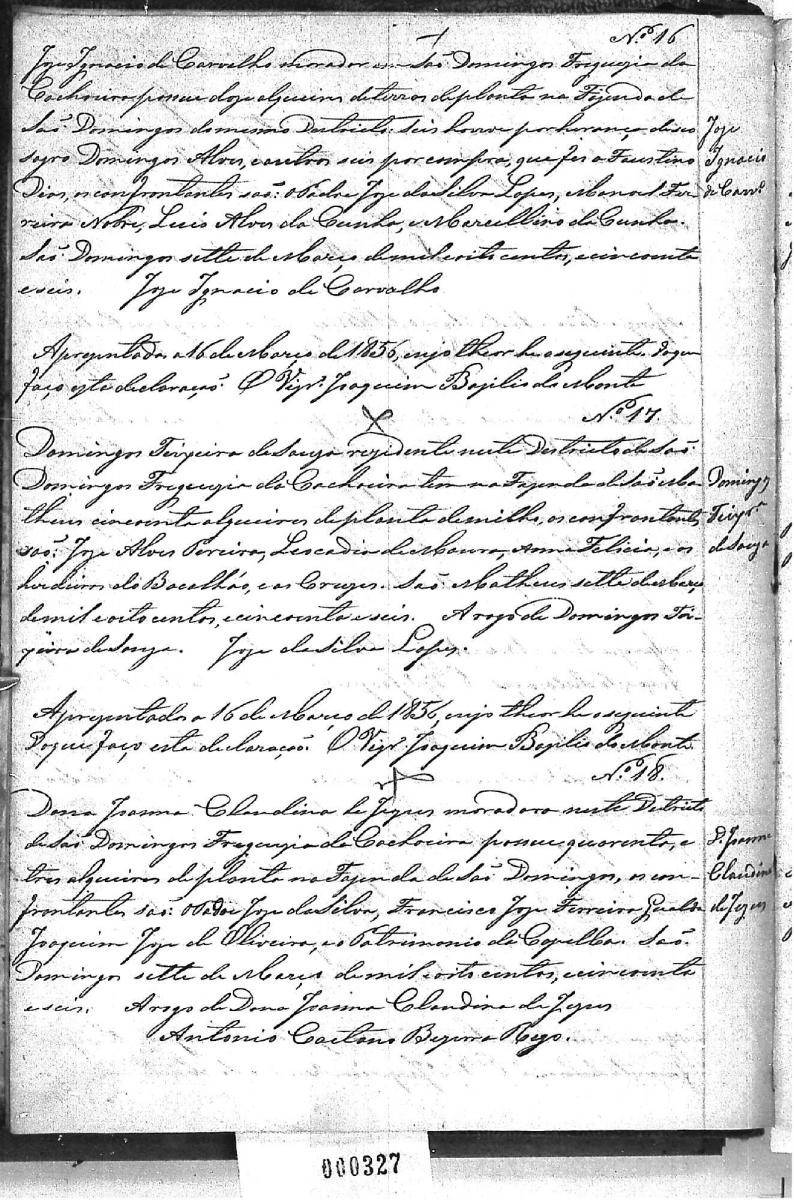 Nº 16
Joze Ignacio de Carvalho morador em São Domingos Freguezia da
Cachoeira possue doze alqueires de terras de planta na Fazenda de
São Domingos do mesmo Destricto. Seis houve por herança de seo
sogro Domingos Alves, e outros seis por compra, que fes a Faustino
Dias, os confrontantes são: o Padre Joze da Silva Lopes, Manoel Fer-
reira Nobre, Luis Alves da Cunha, e Marcellino da Cunha.
São Domingos sette de Março de mil e oito centos, e cincoenta
e seis. Joze Ignacio de Carvalho
Joze
Ignacio
de Carvº
Aprezentada a 16 de Março de 1856, cujo theor he o seguinte. Do que
faço esta declaração. O Vigrº Joaquim Bazilio do Monte
Nº 17.
Domingos Teixeira de Souza rezidente neste Destricto de São
Domingos Freguezia da Cachoeira tem na Fazenda de São Ma-
theus cincoenta alqueires de planta de milho, os confrontantes
são: Joze Alves Pereira, Leocadia de Moura, Anna Felicia, e os
herdeiros do Bacalháo, e as Cruzes. São Matheus sette de Março
de mil e oito centos, e cincoenta e seis. A rogo de Domingos Tei-
xeira de Souza. Joze da Silva Lopes.
Domingos
Teixrª
de Souza
Aprezentada a 16 de Março de 1856, cujo theor he o seguinte
Do que faço esta declaração. O Vigrº Joaquim Bazilio do Monte
Nº 18.
Dona Joanna Claudina de Jezus moradora neste Destricto
de São Domingos Freguezia da Cachoeira possue quarenta, e
tres alqueires de planta na Fazenda de São Domingos, os con-
frontantes são: o Padre Joze da Silva, Francisco Joze Ferreira Gualda
Joaquim Joze de Oliveira, e o Patrimonio da Capella. São
Domingos sette de Março de mil e oito centos, e cincoenta
e seis. A rogo de Dona Joanna Claudina de Jezus
Antonio Caetano Bezerra Rego.
D. Joanna
Claudina
de Jezus
000327